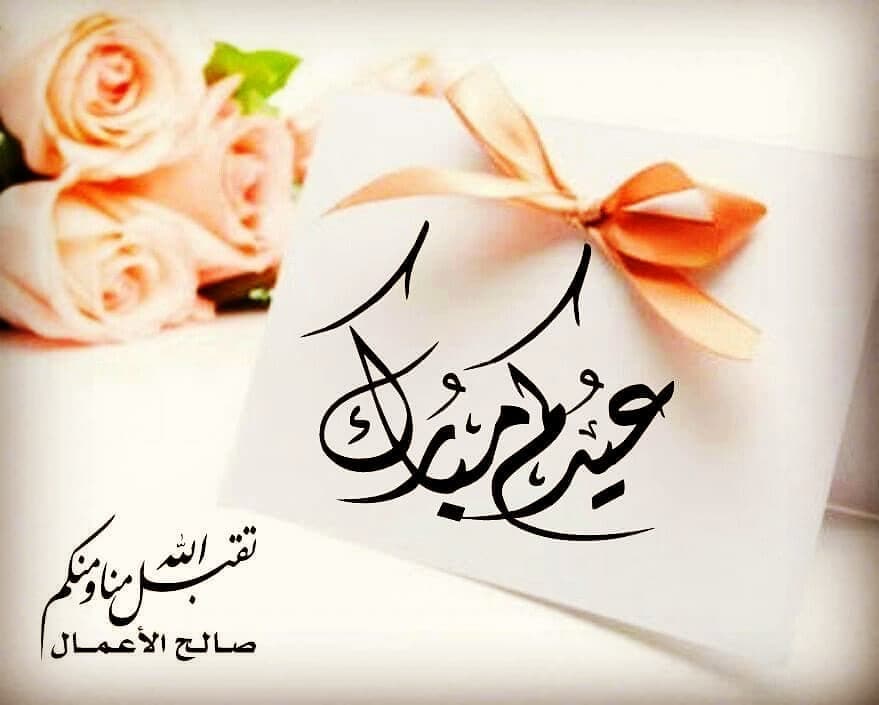 عيدكم مبارك
تقبل الله منا ومنكم
صالح الأعمال